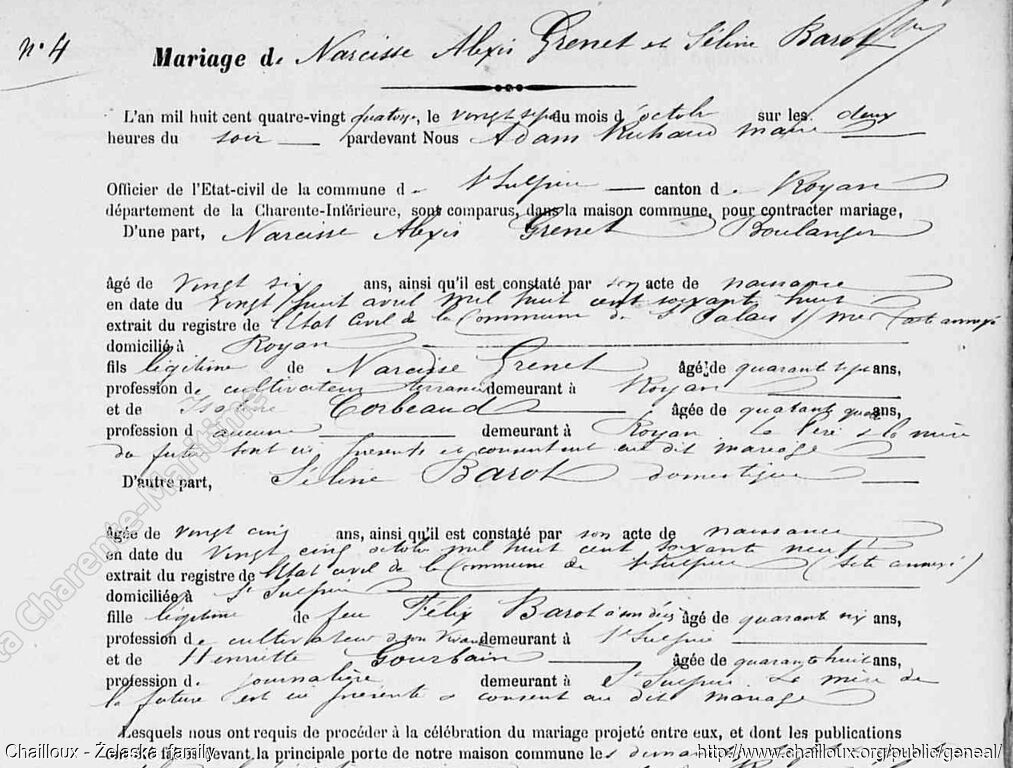 n° 4
Mariage de Narcisse Alexis Grenet et Séline Barot
L'an mil huit cent quatre-vingt quatorze, le vingt sept du mois d'octobre sur les deux
heures du soir pardevant Nous Adam Richaud maire
Officier de l'Etat-civil de la commune de St Sulpice canton de Royan
département de la Charente-Inférieure, sont comparus, dans la maison commune, pour contracter mariage,
D'une part, Narcisse Alexis Grenet Boulanger
âgé de vingt six ans, ainsi qu'il est constaté par son acte de naissance
en date du vingt huit avril mil huit cent soixante huit
extrait du registre de l'Etat Civil de la Commune de St Palais s/ mer (acte annexé
domicilié à Royan
fils légitime de Narcisse Grenet âgé de quarante sept ans,
profession de cultivateur demeurant à Royan
et de Corbeaud âgée de quarante quatre ans,
profession d aucune demeurant à Royan Le père & la mère
du futur sont ici présents et consentent au dit mariage
D'autre part, Séline Barot domestique
âgée de vingt cinq ans, ainsi qu'il est constaté par son acte de naissance
en date du vingt cinq octobre mil huit cent soixante neuf
extrait du registre de l'Etat civil de la Commune de St Sulpice (acte annexé)
domiciliée à St Sulpice
fille légitime de feu Félix Barot âgé de quarante six ans,
profession de cultivateur de son vivant demeurant à St Sulpice
et de Henriette Gourbain âgée de quarante huit ans,
profession d. journalière demeurant à St Sulpice. La mère de
la future est ici présente & consent au dit mariage
Lesquels nous ont requis de procéder à la célébration du mariage projeté entre eux, et dont les publications
ont été faites devant la principale porte de notre maison commune les dimanches
la Charente-Maritime
Chailloux - Żelaska family
http://www.chailloux.org/public/geneal/